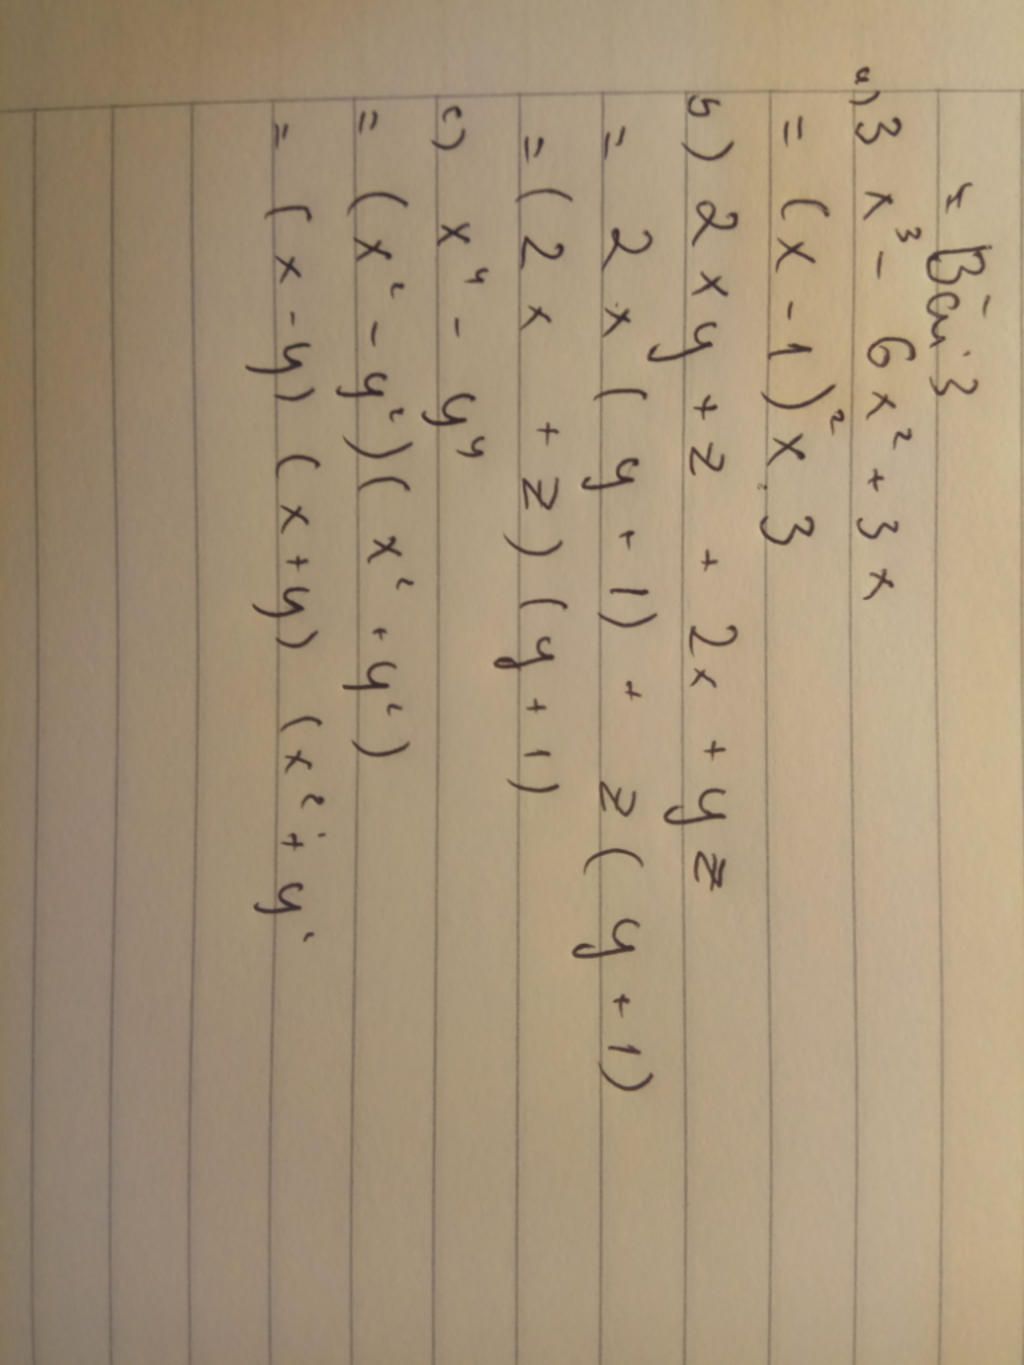 * Bài 3
a) 3x³ - 6x² + 3x
= (x - 1)² x . 3
b) 2xy + z + 2x + yz
= 2x (y + 1) + z (y + 1)
= (2x + z) (y + 1)
c) x⁴ - y⁴
= (x² - y²) (x² + y²)
= (x - y) (x + y) (x² + y²